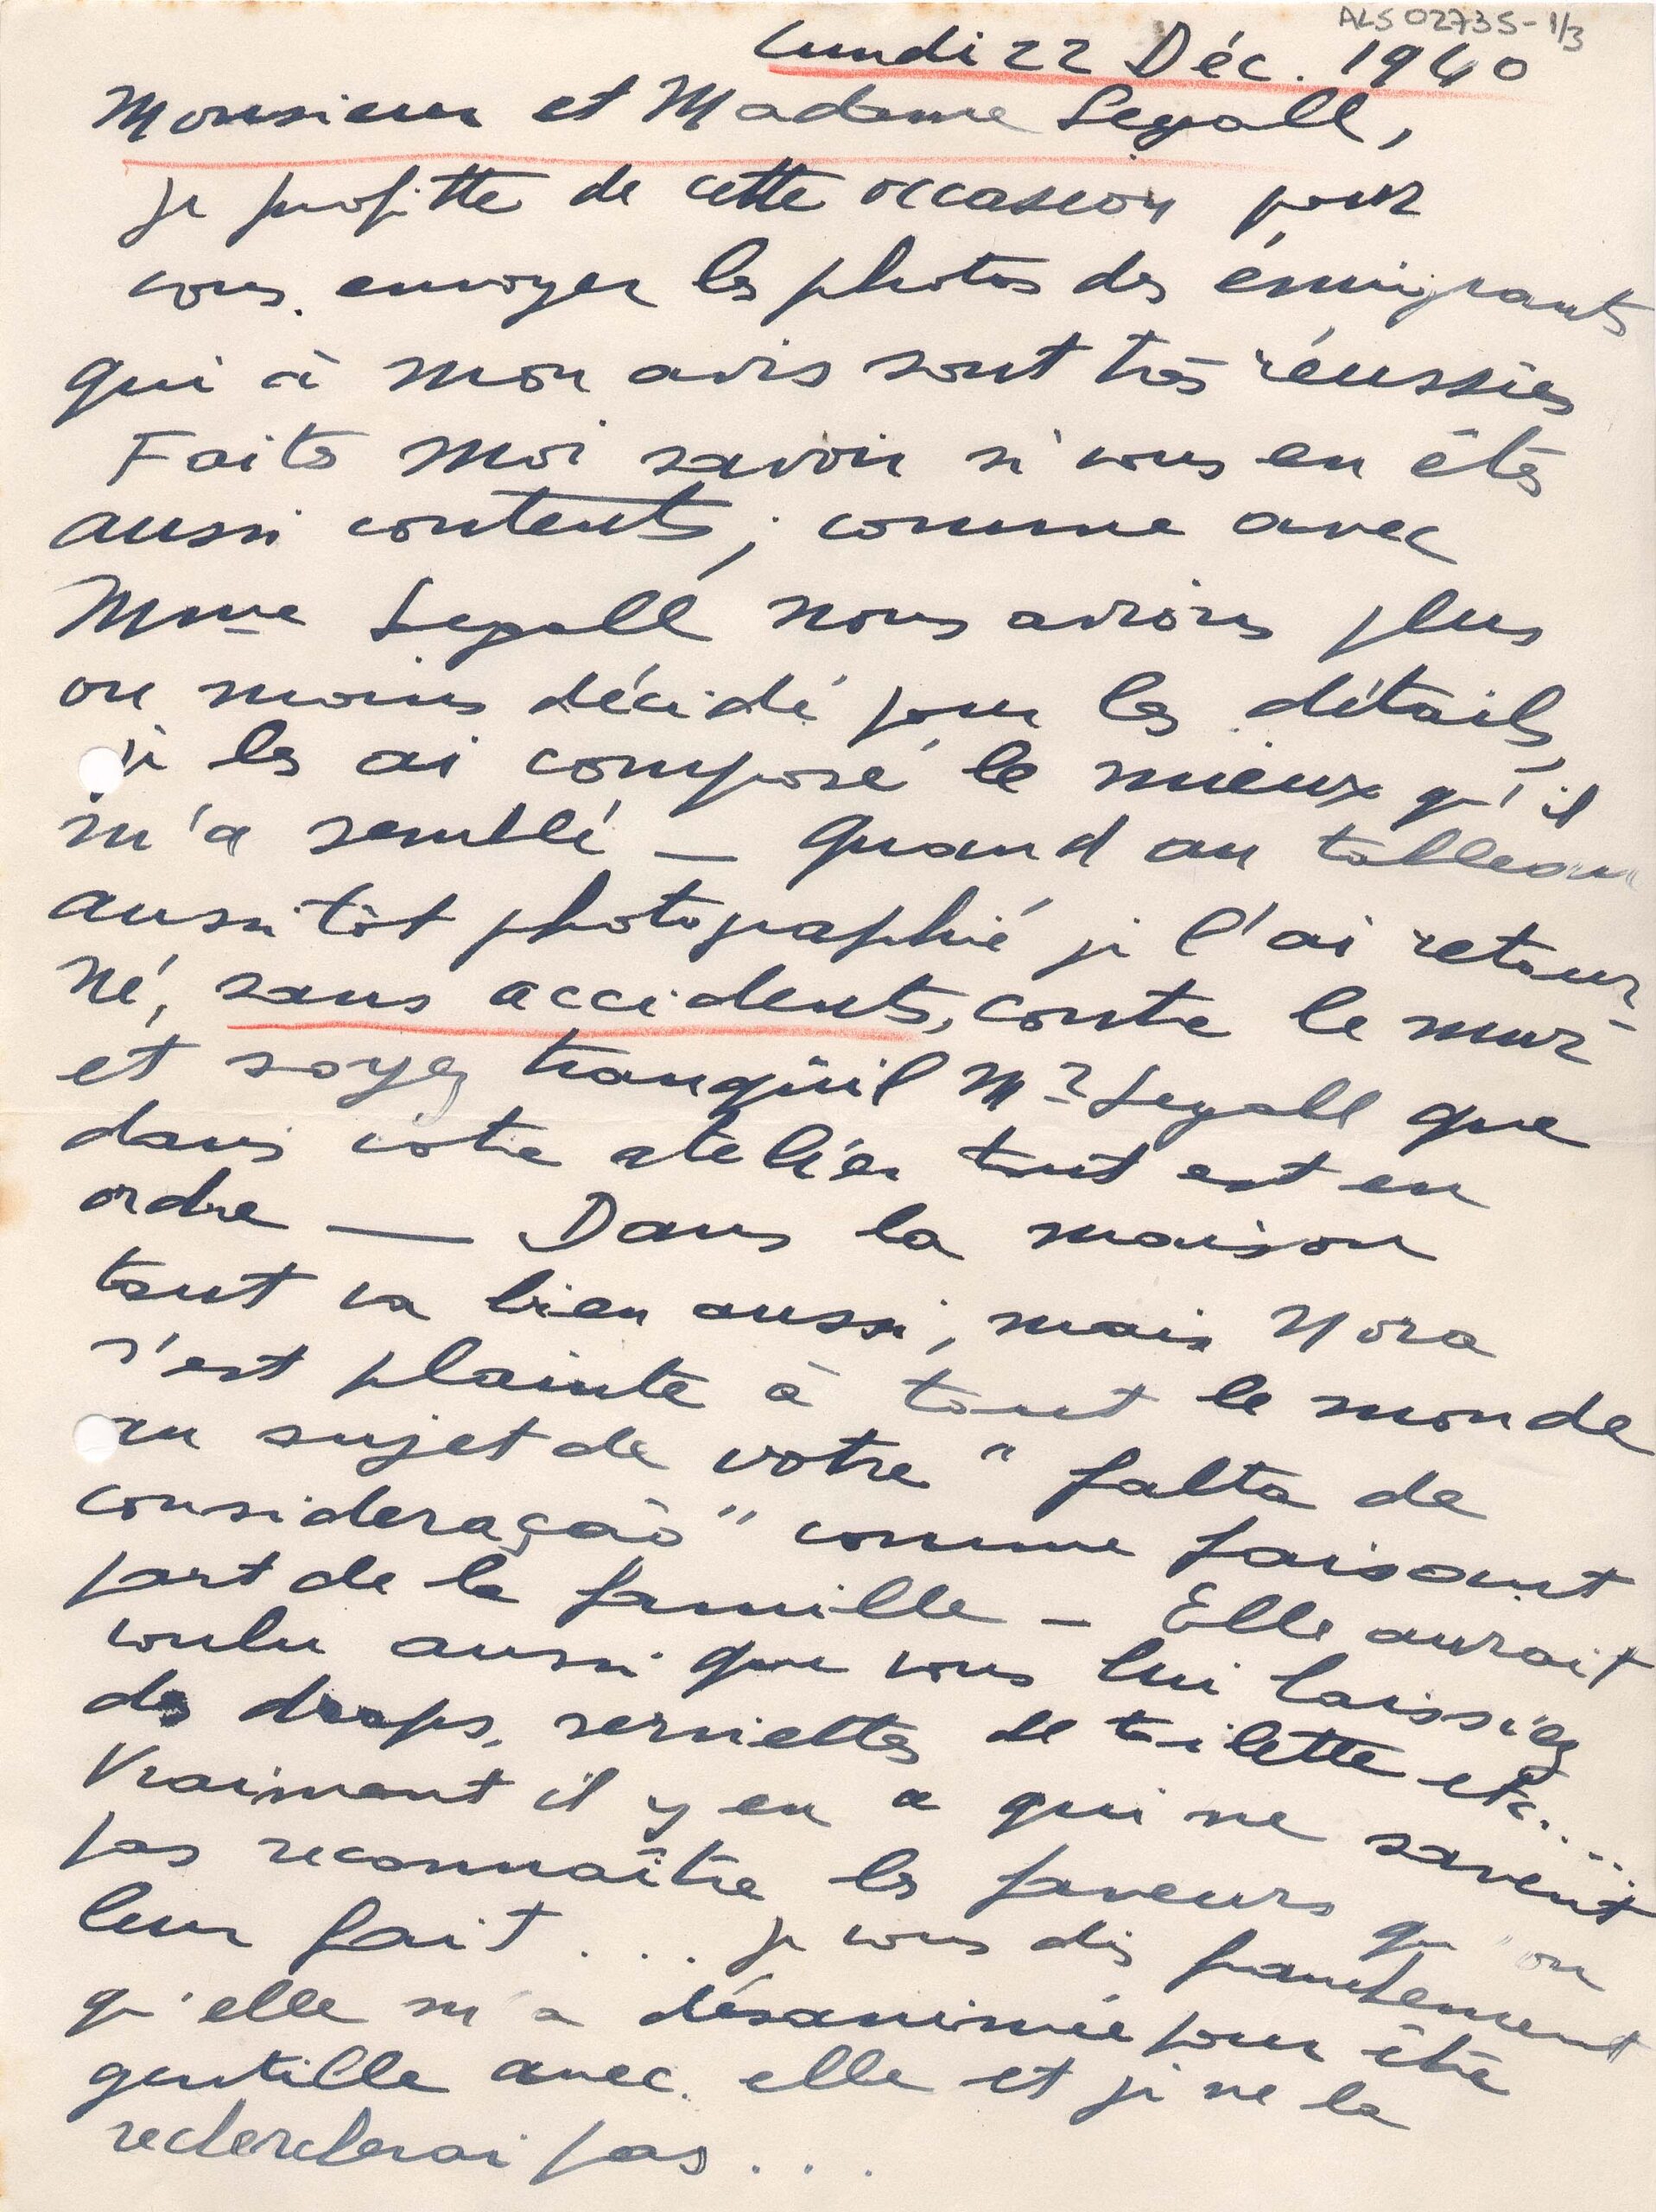 ALS 02735-1/3
Lundi 22 Déc. 1940
Monsieur et Madame Segall,
je profitte de cette occasion pour
vous envoyer les photos des émigrants
qui à mon avis sont très réussies
Faites moi savoir si vous en êtes
aussi contents; comme avec
Mme Segall nous avions plus
ou moins décidé pour les détails,
je les ai composé le mieux qu'il
m'a semblé — Quand au tableau
aussitôt photographié je l'ai retour-
né, sans accidents, contre le mur
et soyez tranqüil Mr Segall que
dans votre atelier tout est en
ordre — Dans la maison
tout va bien aussi, mais Nora
s'est plainte à tout le monde
au sujet de votre "falta de
consideração" comme faisant
part de la famille — Elle aurait
voulu aussi que vous lui laissiez
des draps, serviettes de toilette etc...
Vraiment il y en a qui ne savent
pas reconnaître les faveurs qu'on
leur fait... je vous dis franchement
qu'elle m'a désanimée pour être
gentille avec elle et je ne la
rechercherai pas...